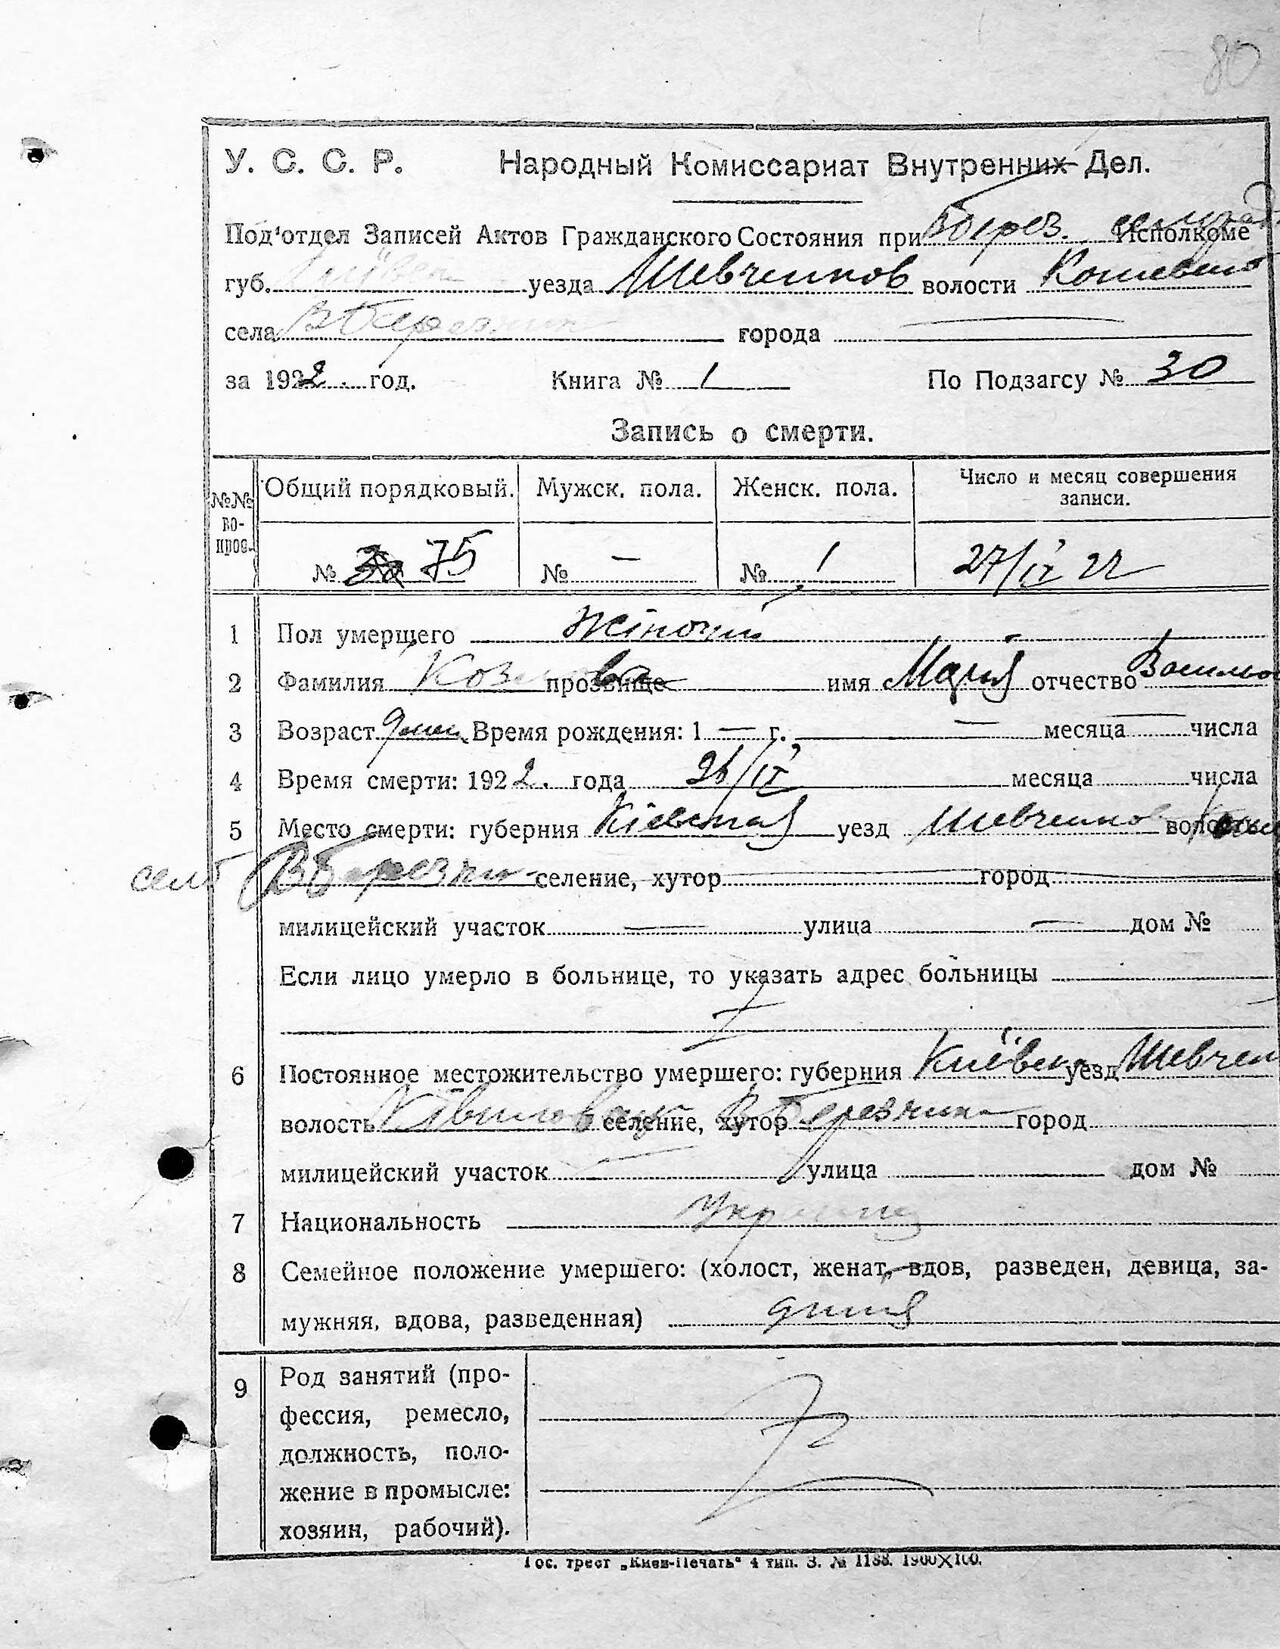 80
У. С. С. Р. Народный Комиссариат Внутренних Дел.
Под'отдел Записей Актов Гражданского Состояния при Вберез. Исполкоме
губ. уезда Шевченков волости
села города
за 1922 год. Книга № 1 По Подзагсу № 30
Запись о смерти.
№№ вопрос. Общий порядковый. Мужск. пола. Женск. пола. Число и месяц совершения записи.
№ 75 № — № 1 27/IV 22
1 Пол умершего Жіночий
2 Фамилия прозвище имя Марія отчество
3 Возраст Время рождения: 1 — г. — месяца — числа
4 Время смерти: 1922. года 26/IV месяца числа
5 Место смерти: губерния Київская уезд Шевченков
село Вберезки селение, хутор город
милицейский участок — улица — дом №
Если лицо умерло в больнице, то указать адрес больницы
6 Постоянное местожительство умершего: губерния Киёвск уезд Шевчен
волость селение, хутор город
милицейский участок — улица дом №
7 Национальность
8 Семейное положение умершего: (холост, женат, вдов, разведен, девица, за-
мужняя, вдова, разведенная)
9 Род занятий (про-
фессия, ремесло,
должность, поло-
жение в промысле:
хозяин, рабочий).
Гос. трест „Киев-Печать" 4 тип. З. № 1188. 1900×100.